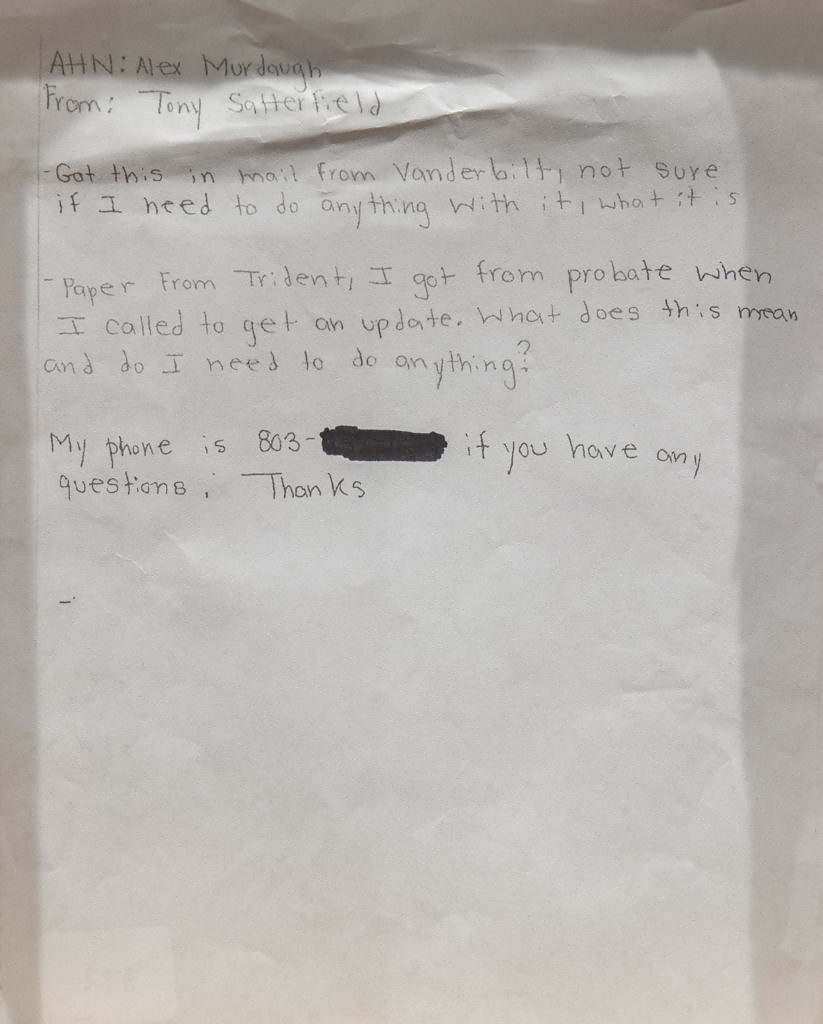 Attn: Alex Murdaugh
From: Tony Satterfield
-Got this in mail from Vanderbilt, not sure
if I need to do anything with it, what it is
-Paper From Trident, I got from probate when
I called to get an update. What does this mean
and do I need to do anything?
My phone is 803- if you have any
questions. Thanks
-